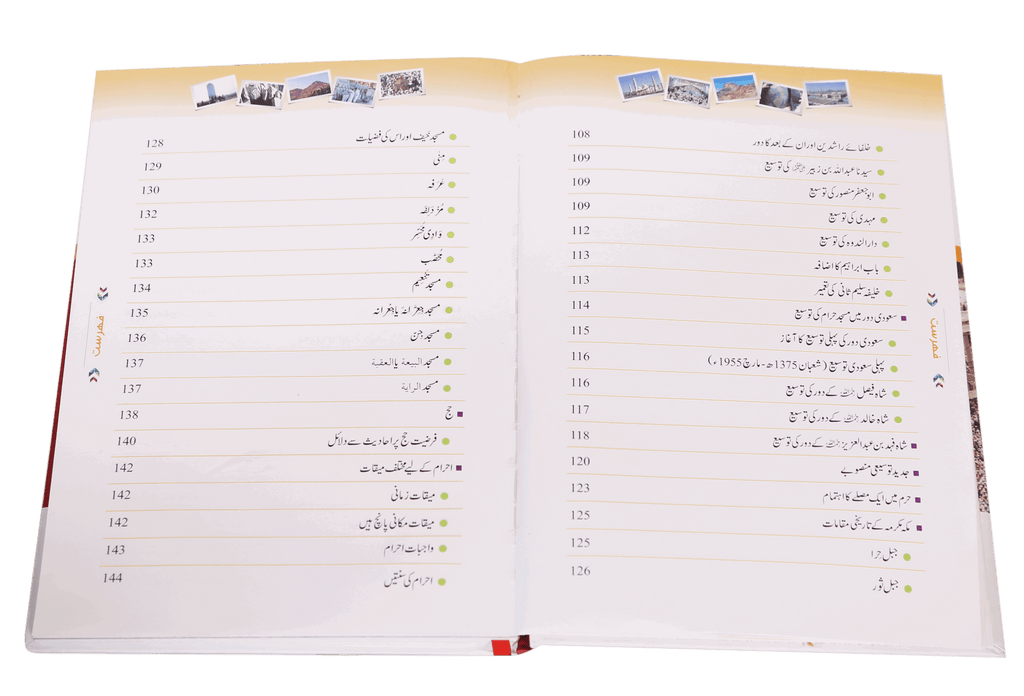 فہرست
خلفائے راشدین اور ان کے بعد کا دور 108
سیدنا عبداللہ بن زبیر کی توسیع 109
ابو جعفر منصور کی توسیع 109
مہدی کی توسیع 109
دارالندوہ کی توسیع 112
باب ابراہیم کا اضافہ 113
خلیفہ سلیم ثانی کی تعمیر 113
سعودی دور میں مسجد حرام کی توسیع 114
سعودی دور کی پہلی توسیع کا آغاز 115
پہلی سعودی توسیع (شعبان 1375ھ - مارچ 1955ء) 116
شاہ فیصل رحمہ اللہ کے دور کی توسیع 116
شاہ خالد رحمہ اللہ کے دور کی توسیع 117
شاہ فہد بن عبدالعزیز رحمہ اللہ کے دور کی توسیع 118
جدید توسیعی منصوبے 120
حرم میں ایک مصلے کا اہتمام 123
مکہ مکرمہ کے تاریخی مقامات 125
جبل حرا 125
جبل ثور 126
فہرست
مسجد خیف اور اس کی فضیلت 128
منٰی 129
عَرَفہ 130
مُزدَلِفہ 132
وَادی مُحَسِّر 133
مُحَصَّب 133
مسجد تنعیم 134
مسجد جِعْرَانَہ یا جِعِرانہ 135
مسجد جِنّ 136
مسجد البيعة یا العقبة 137
مسجد الراية 137
حج 138
فرضیت حج پر احادیث سے دلائل 140
احرام کے لیے مختلف میقات 142
میقات زمانی 142
میقات مکانی پانچ ہیں 142
واجبات احرام 143
احرام کی سنتیں 144